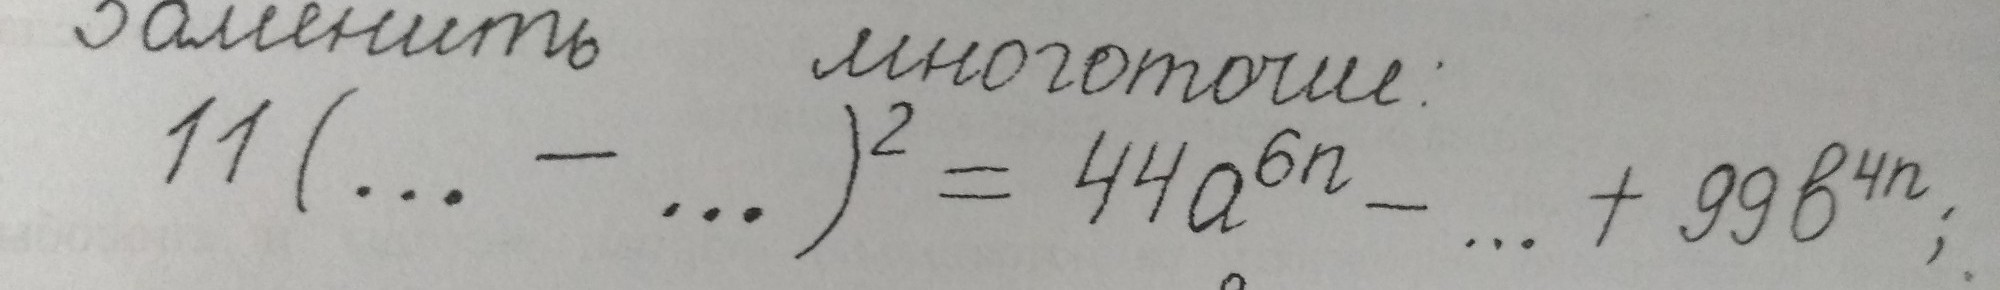 Заменить многоточие:
11(... - ...)² = 44a⁶ⁿ - ... + 99b⁴ⁿ;